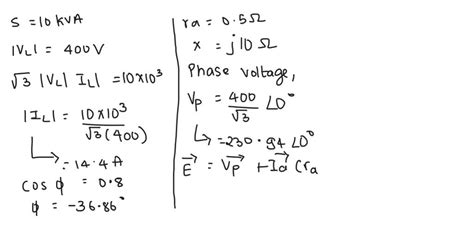 S = 10 kVA
|VL| = 400 V
√3 |VL| |IL| = 10×10³
|IL| = 10×10³ / √3 (400)
↳ = 14.4 A
cos ϕ = 0.8
ϕ = -36.86°
ra = 0.5 Ω
x = j10 Ω
Phase voltage,
Vp = 400/√3 ∠0°
↳ = 230.94 ∠0°
E⃗ = V⃗p + I⃗a (ra